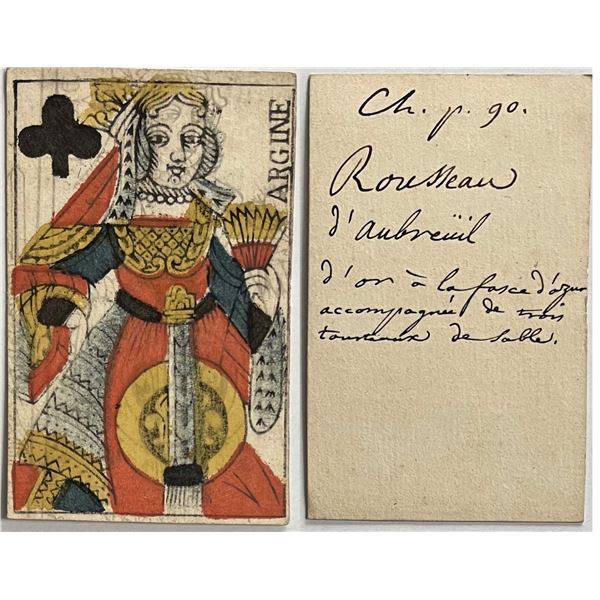 ARGINE
Ch. p. 90.
Rousseau
d'aubreüil
d'or à la fasce d'azur
accompagnée de trois
tourteaux de sable.